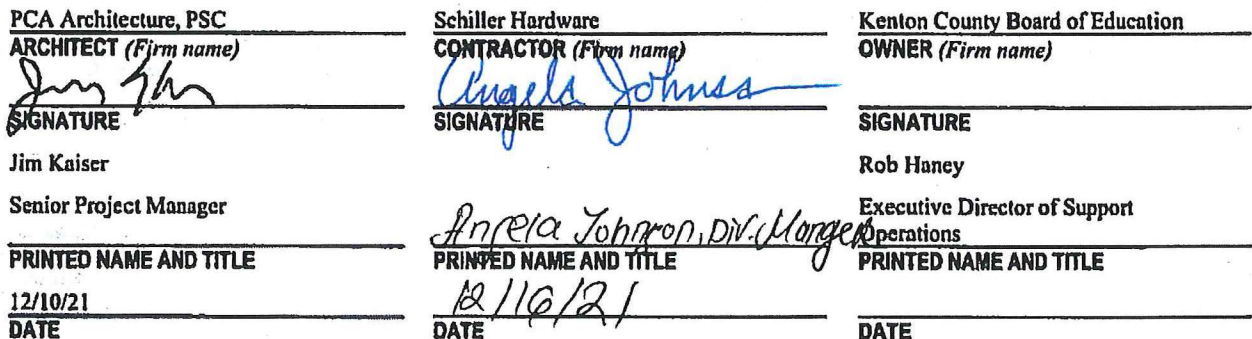 PCA Architecture, PSC
ARCHITECT (Firm name)
SIGNATURE
Jim Kaiser
Senior Project Manager
PRINTED NAME AND TITLE
12/10/21
DATE
Schiller Hardware
CONTRACTOR (Firm name)
Angela Johnson
SIGNATURE
Angela Johnson, Div. Manger
PRINTED NAME AND TITLE
12/16/21
DATE
Kenton County Board of Education
OWNER (Firm name)
SIGNATURE
Rob Haney
Executive Director of Support
Operations
PRINTED NAME AND TITLE
DATE